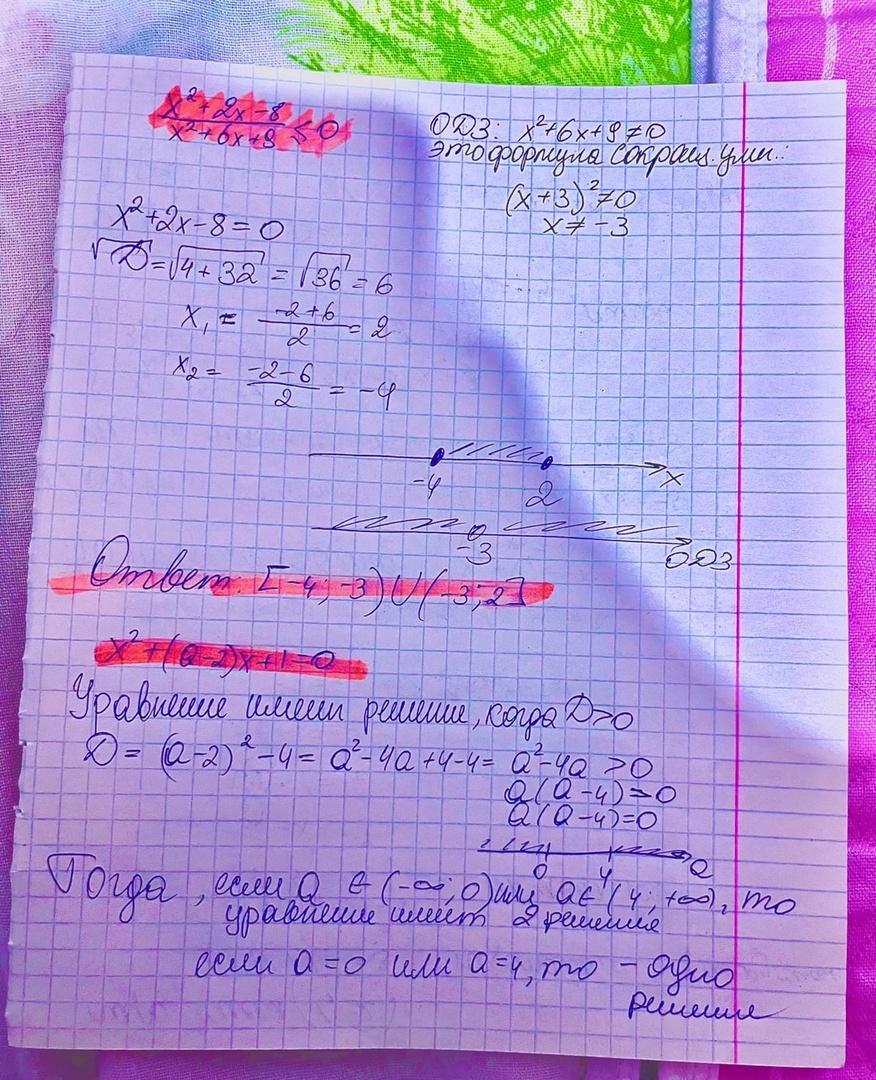 x²+2x-8 / x²+6x+9 ≤ 0
ОДЗ: x²+6x+9≠0
это формула сокращ. умн.:
(x+3)²≠0
x≠-3
x²+2x-8=0
√D=√4+32=√36=6
x₁= -2+6 / 2 = 2
x₂= -2-6 / 2 = -4
-4 2 x
-3 ОДЗ
Ответ. [-4; -3)∪(-3; 2]
x²+(a-2)x+1=0
Уравнение имеет решение, когда D>0
D=(a-2)²-4=a²-4a+4-4=a²-4a>0
a(a-4)>0
a(a-4)=0
0 4 a
Тогда, если a∈(-∞; 0) или a∈(4; +∞), то
уравнение имеет 2 решения
если a=0 или a=4, то - одно
решение